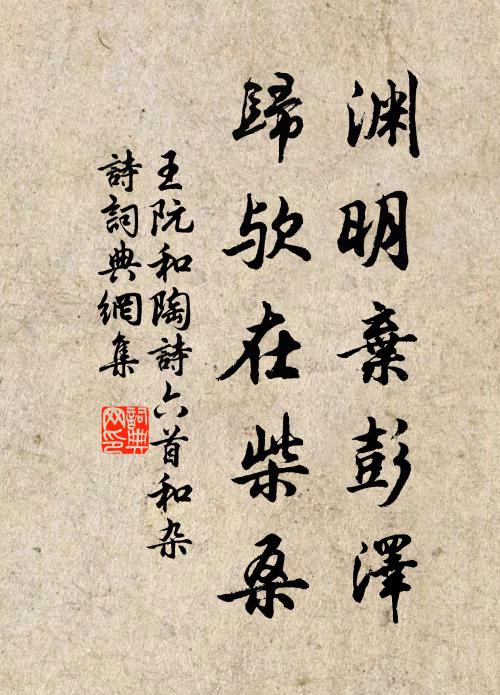 渊明棄彭澤
歸欤在柴桑
王阮和陶詩六首和杂
詩詞典網集
詞典网印